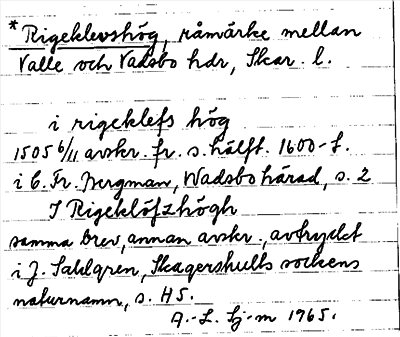 *Rigeklevshög, råmärke mellan
Valle och Vadsbo hdr, Skar. l.
i rigeklefs hög
1505 6/11 avskr. fr. s. hälft. 1600-t.
i C. Fr. Bergman, Wadsbo härad, s. 2
I Rigeklöfzhögh
samma brev, annan avskr., avtryckt
i J. Sahlgren, Skagershults sockens
naturnamn, s. 45.
A.-L. Hj-m 1965.